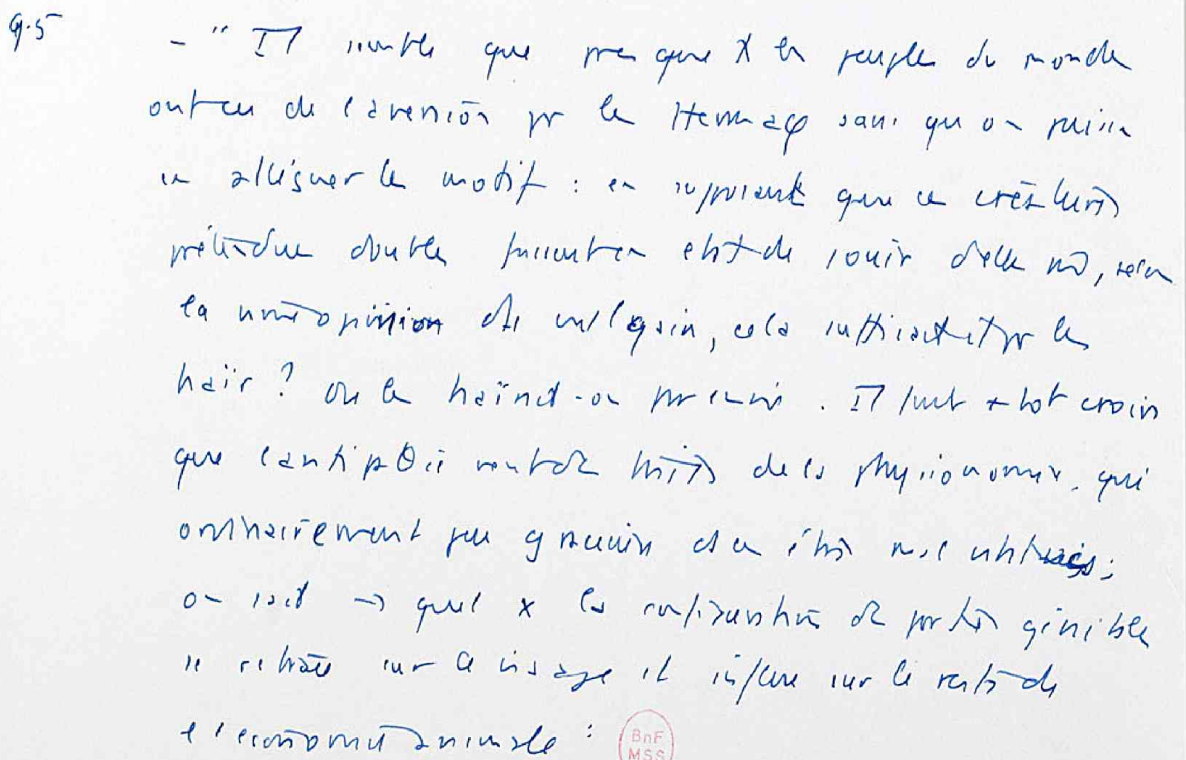 g.5
- " Il semble que presque x les peuples du monde
ont eu de l'aversion pr les Hermaφ sans qu'on puisse
en alléguer le motif : en supposant que ces créatures
prétendue doubles fussent en état de jouir d'elle m̄, selon
la opinion de vulgain, cela suffisait-il pr les
haïr ? On les haïrait-on par envie. Il faut + tôt croire
que l'antipθie de la physionomie, qui
ordinairement peu gracieuse ds ces êtres
on sait → quel x la de parties génitale
se retrace sur le visage et influe sur le reste de
l'économie animale :
BnF
MSS